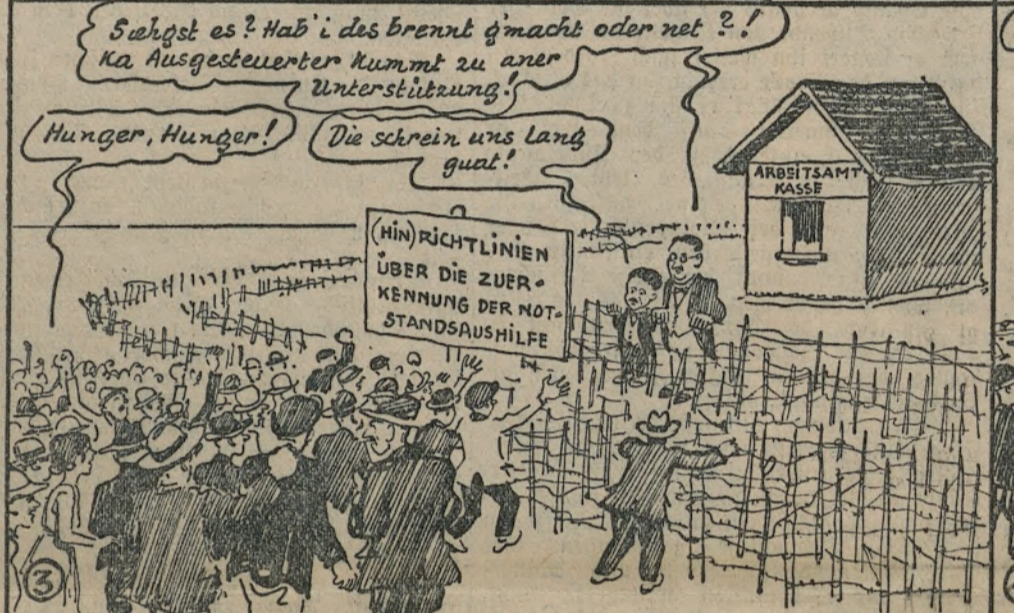 Siehgst es? Hab' i des brennt g'macht oder net?!
Ka Ausgesteuerter kummt zu aner
Unterstützung!
Hunger, Hunger!
Die schrein uns lang
guat!
ARBEITSAMT
KASSE
(HIN)RICHTLINIEN
ÜBER DIE ZUER-
KENNUNG DER NOT-
STANDSAUSHILFE
3